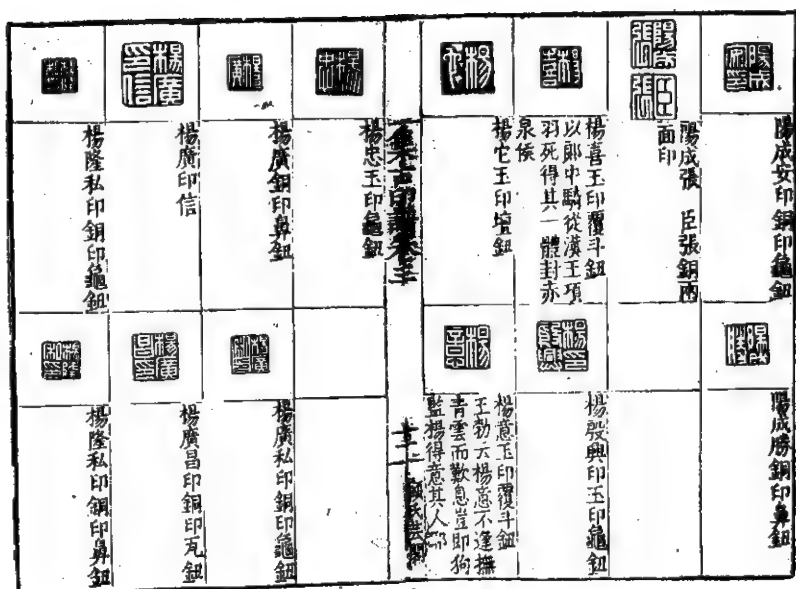 陽成安印銅印龜鈕
陽成張 臣張銅兩
面印
楊喜玉印覆斗鈕
以郎中騎從漢王項
羽死得其一體封赤
泉侯
楊它玉印壇鈕
陽成勝銅印鼻鈕
楊殷興印玉印龜鈕
楊意玉印覆斗鈕
王勃云楊意不逢撫
青雲而歎息豈即狗
監楊得意其人耶
集古印譜卷
顧氏芸閣
楊忠玉印龜鈕
楊廣銅印鼻鈕
楊廣印信
楊隆私印銅印龜鈕
楊廣私印銅印龜鈕
楊廣昌印銅印瓦鈕
楊隆私印銅印鼻鈕